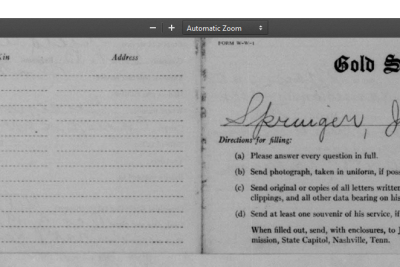 Automatic Zoom
Kin
Address
FORM W-W-1
Gold S
Springer, J
Directions for filling:
(a) Please answer every question in full.
(b) Send photograph, taken in uniform, if poss
(c) Send original or copies of all letters written
clippings, and all other data bearing on his
(d) Send at least one souvenir of his service, if
When filled out, send, with enclosures, to J
mission, State Capitol, Nashville, Tenn.